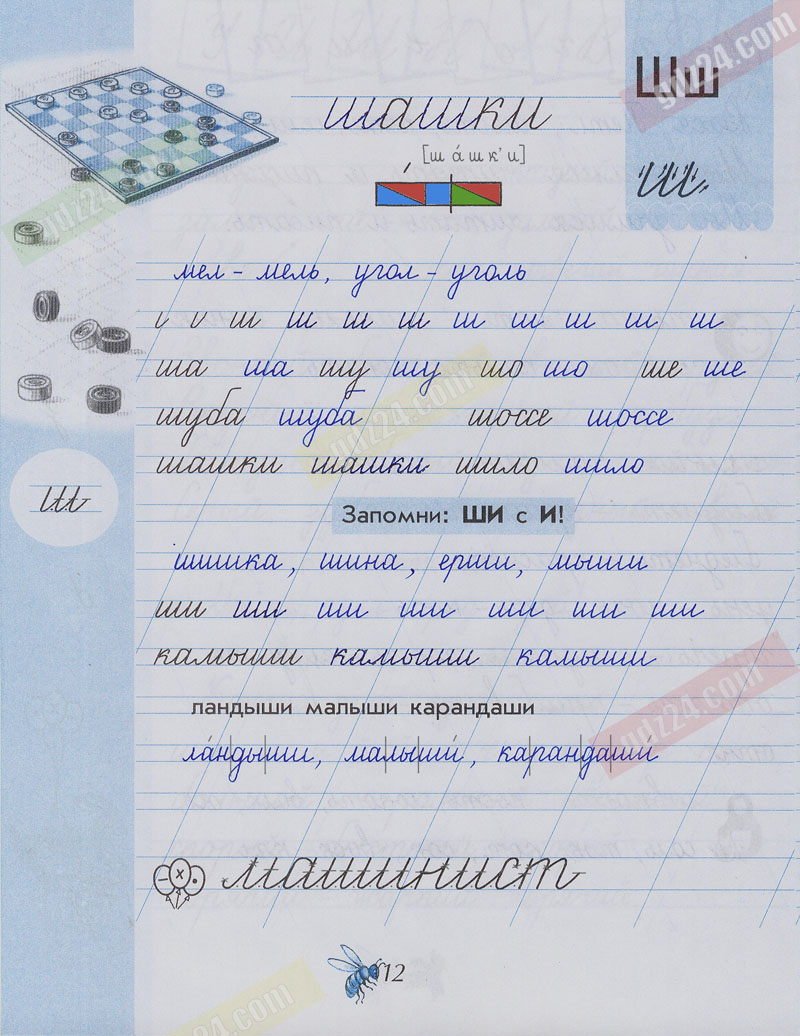 Шш
шашки
[ш а́ ш к’ и]
ш
мел - мель, угол - уголь
ш ш ш ш ш ш ш ш ш
ша ша шу шу шо шо ше ше
шуба шуба шоссе шоссе
шашки шашки шило шило
ш
Запомни: ШИ с И!
шишка, шина, ерши, мыши
ши ши ши ши ши ши ши
камыши камыши камыши
ландыши малыши карандаши
ла́н|ды|ши, ма|лы|ши́, ка|ран|да|ши́
машинист
12
gdz24.com
gdz24.com
gdz24.com
gdz24.com
gdz24.com